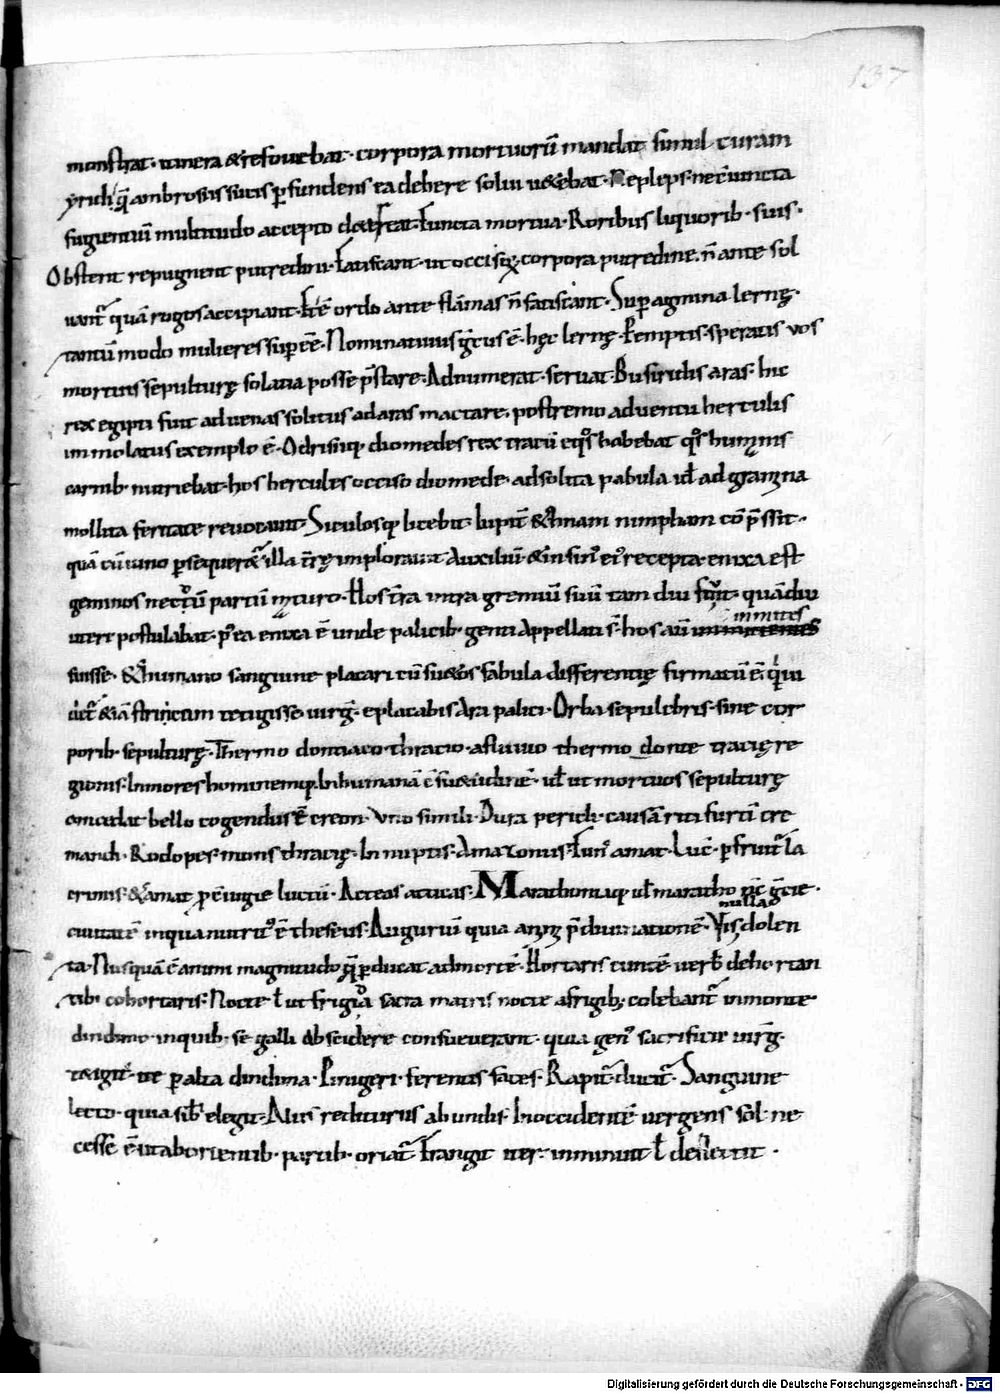 137
monstrat. itinera & refouebat. corpora mortuorū mandat simul curam
yridi q̄ ambrosiis sucis p̄fundens ea debere solui uetebat. Repleps. nec iuncta
fugientiū multitudo accepto Functa mortua. Roribus liquorib. suis.
Obstent repugnent putredini. Fatiscant. ut occisoꝝ corpora putredine. n̄ ante sol
uant̄ quā rogos accipiant. ordo ante flāmas n̄ fatiscant. Sup agmina lernę.
tantū modo mulieres sup eē. Nominatiuus est ē. hęc lernę. Peremptis. speratis uos
mortuis sepulturę solatia posse p̄stare. Adnumerat. seruat. Busiridis aras. hic
rex egipti fuit aduenas solitus ad aras mactare. postremo aduentu herculis
immolatus exemplo ē. Odrisiiq; diomedes rex traciū eq̊s habebat q̊s humanis
carnib. nutriebat. hos hercules occiso diomede. ad solita pabula uł ad gramina
mollita feritate reuocauit. Siculosq; licebit. iupit̄ & thnam nimpham cō p̄ssit.
quā cū iuno p̄sequeret̄ illa t̄rę implorauit auxiliū & in sinū ei recepta. enixa est
geminos partū. Hos t̄ra intra gremiū suū tam diu quādiu
uteri postulabat. p̄ ea enixa ē unde palicib. genti appellati s̄. hos aū inmites
fuisse. & humano sanguine placari cū sue fabula differentię firmatū ē.
tetigisse uirḡ. & placabilis Ara palici. Orba sepulchris. sine cor
porib. sepulturę. Thermo dontiaco thracio. a fluuio thermo donte tracię re
gionis. In mores hominemq;. Inhumanā ē suetudinē. uł ut mortuos sepulturę
concedat bello cogendus ē creon. Vno simili. Dura pericli. causā riti furti cre
mandi. Rodopes. mons thracię. In nuptis. Amazonius. amat. Luc̄. p̄fruit̄ la
crimis. & amat p̄ iuge luctū. Acteas atticas. Marathoniaq; uł maratho
nulla
ciuitatē in qua nutrit ē theseus. Auguriū quia p̄ diuinationē. Vis dolen
ta. Nusquā ē animi magnitudo q̄ p̄ducat ad mortē. Hortaris cunctē uerb̄ dehortan
tibi cohortaris. Nocte ł ut frigia sacra matris nocte a frigib; colebant̄ in monte
dindimo. in quib. se galli abscidere consueuerant. quia gen sacrificii uirḡ.
tetigit. ite p̄ alta dindima. Pinigeri. ferentis faces. Rapit̄. ducit̄. Sanguine
lecto. quia sib̄ elegit. Alius rediturus ab undis. In occidentē uergens sol. ne
cesse ē ut ab orientib. partib. oriat̄. Frangit iter. inminuit ł deflectit.
Digitalisierung gefördert durch die Deutsche Forschungsgemeinschaft - DFG